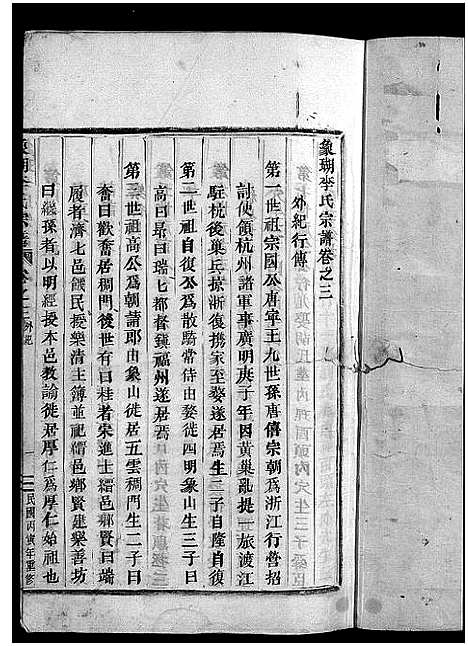 象瑚李氏宗譜卷之三
外紀行傳
第一世祖宗國公唐寧王九世孫唐僖宗朝為浙江行營招
討使領杭州諸軍事廣明庚子年因黃巢亂提一旅渡江
駐杭後巢兵掠浙復携家至婺遂居焉生二子自隆自復
第二世祖自復公為散騎常侍由婺徙四明象山生三子曰
高曰昻曰瑞七都督鍾福州遂居焉
第三世祖高公為朝請郎由象山徙居五雲稠門生二子曰
奮曰歡奮居稠門後世有曰桂者宋進士縉邑鄉賢曰瑞
履者濟七邑饑民授樂清主簿並祀縉邑鄉賢建樂善坊
曰綏孫者以明經授本邑教諭徙居厚仁為厚仁始祖也
象瑚李氏宗譜 卷之三 外紀
一
民國丙寅年重修